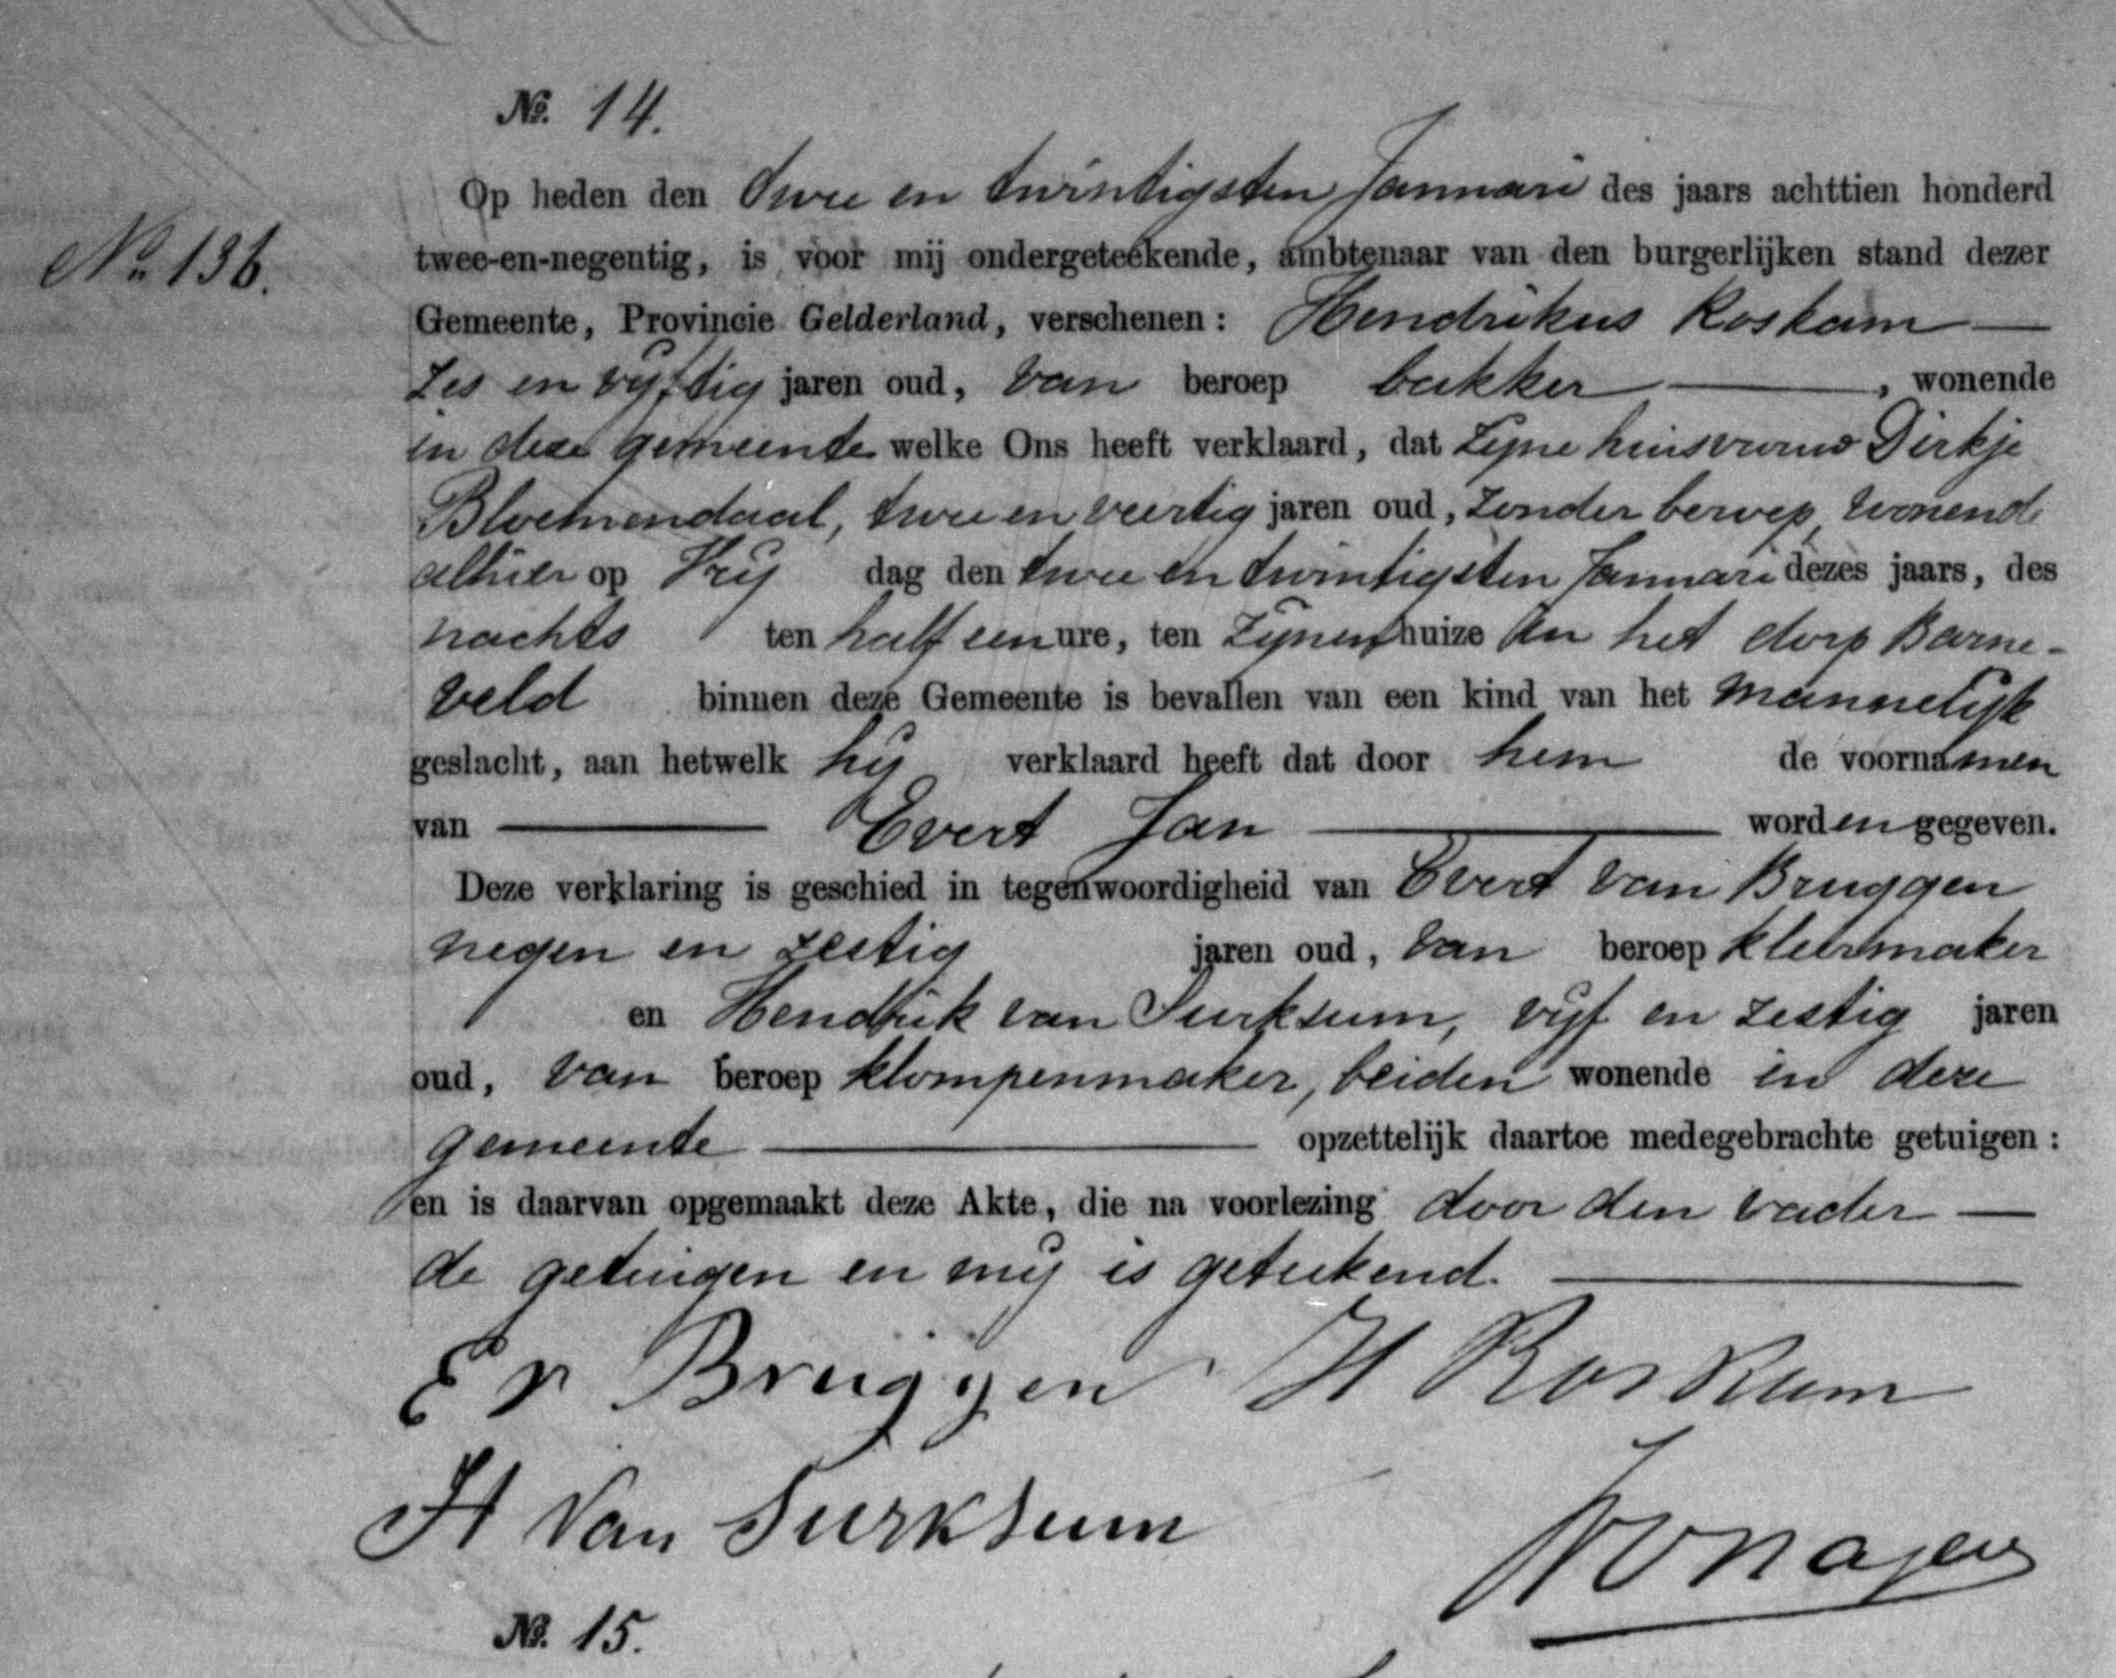 No. 14.
Op heden den twee en twintigsten Januari des jaars achttien honderd
No. 136.
twee-en-negentig, is voor mij ondergeteekende, ambtenaar van den burgerlijken stand dezer
Gemeente, Provincie Gelderland, verschenen: Hendrikus Roskam
zes en vijftig jaren oud, van beroep bakker, wonende
in deze gemeente welke Ons heeft verklaard, dat zijne huisvrouw Dirkje
Bloemendaal, twee en veertig jaren oud, zonder beroep, wonende
alhier op Vrij dag den twee en twintigsten Januari dezes jaars, des
nachts ten half een ure, ten zijnen huize in het dorp Barne-
veld binnen deze Gemeente is bevallen van een kind van het mannelijk
geslacht, aan hetwelk hij verklaard heeft dat door hem de voornamen
van Evert Jan worden gegeven.
Deze verklaring is geschied in tegenwoordigheid van Evert van Bruggen
negen en zestig jaren oud, van beroep kleermaker
en Hendrik van Surksum, vijf en zestig jaren
oud, van beroep klompenmaker, beiden wonende in deze
gemeente opzettelijk daartoe medegebrachte getuigen:
en is daarvan opgemaakt deze Akte, die na voorlezing door den vader
de getuigen en mij is geteekend.
E v Bruggen H Roskam
H van Surksum
No. 15.